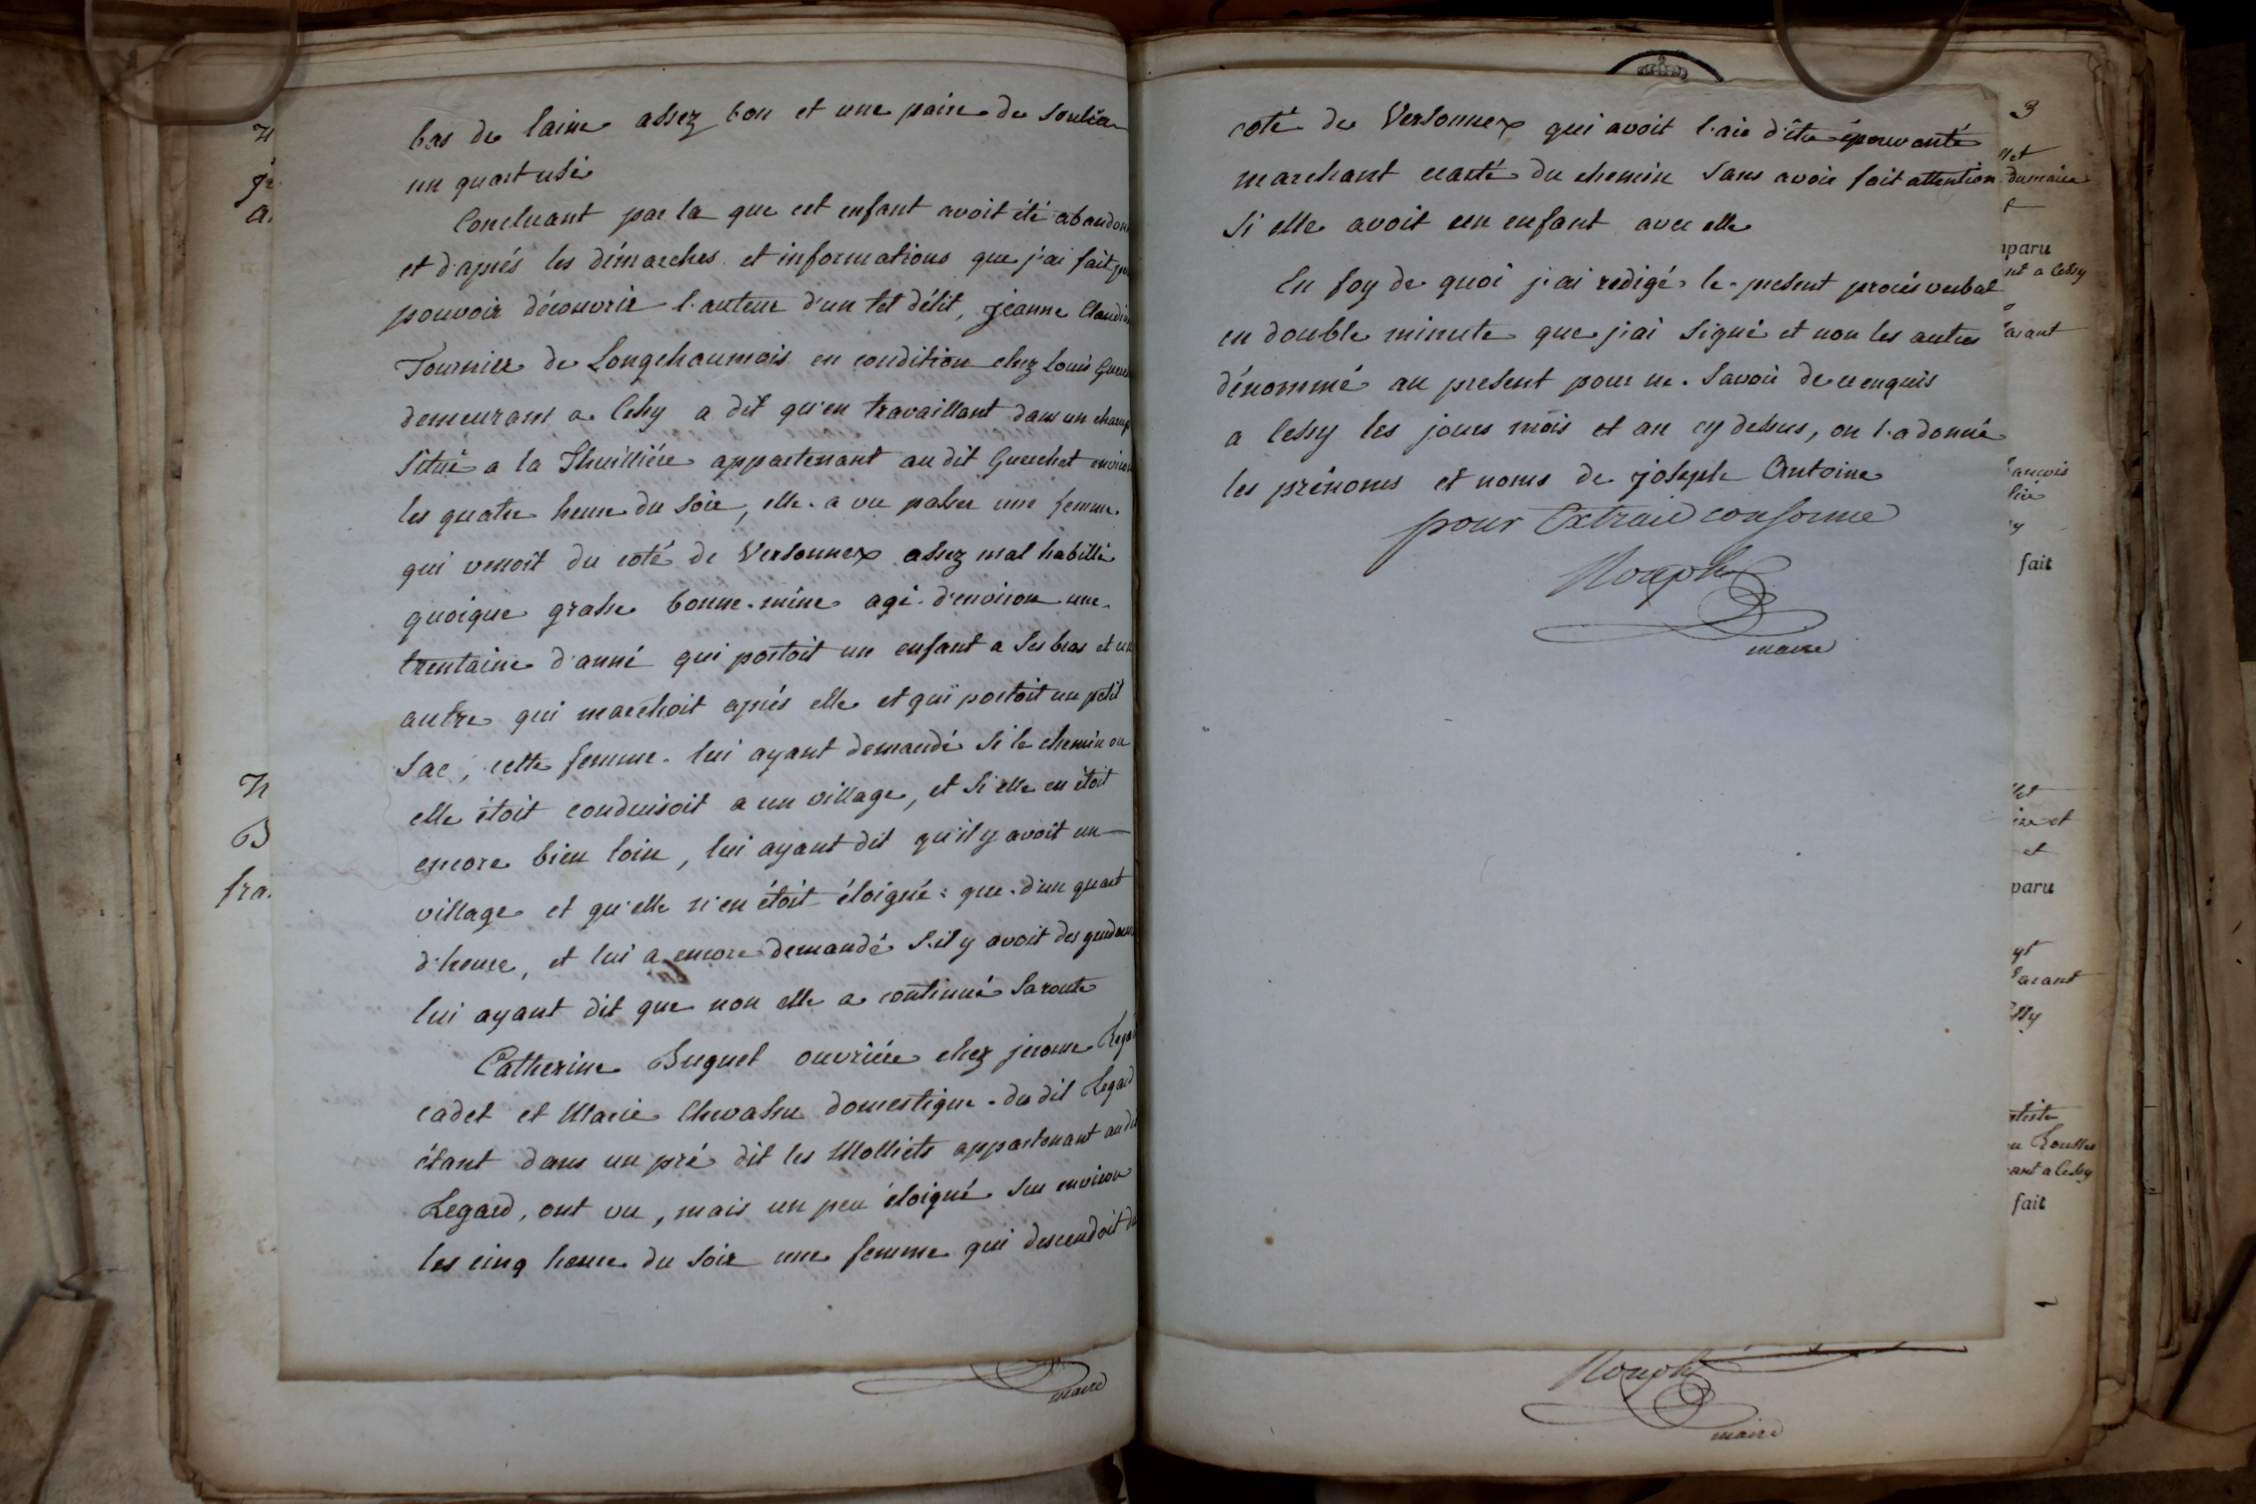 bas de laine assez bon et une paire de soulier
un quart usé
Concluant par la que cet enfant avoit été abandon
et d'aprés les démarches et informations que j'ai fait
pouvoir découvrir l'auteur d'un tel délit, jeanne Claudi
Tournier de Longchaumois en condition chez Louis
demeurant a Cessy a dit qu'en travaillant dans un champ
situé a la Thuilliére appartenant au dit Gueuchet environ
les quatre heure du soir, elle a vu passer une femme
qui venoit du coté de Versonnex assez mal habillé
quoique grasse bonne mine agé d'environ une
trentaine d'anné qui portoit un enfant a ses bras et un
autre qui marchoit aprés elle et qui portoit un petit
sac, cette femme lui ayant demandé si le chemin ou
elle étoit conduisoit a un village, et si elle en étoit
encore bien loin, lui ayant dit qu'il y avoit un
village et qu'elle n'en étoit éloigné que d'un quart
d'heure, et lui a encore demandé s'il y avoit des gendarm
lui ayant dit que non elle a continué sa route
Catherine Buguet ouvriére chez jerome Legar
cadet et Marie Chevassu domestique du dit Legard
étant dans un pré dit les Molliets appartenant au dit
Legard, ont vu, mais un peu éloigné sur environ
les cinq heure du soir une femme qui descendoit du
maire
coté de Versonnex qui avoit l'air d'être épouvanté
marchant ecarté du chemin sans avoir fait attention
si elle avoit un enfant avec elle
En foy de quoi j'ai redigé le present procés verbal
en double minute que j'ai signé et non les autres
dénommé au present pour ne savoir de ce enquis
a Cessy les jours mois et an cy dessus, on l'a donné
les prénoms et noms de joseph Antoine
pour Extrait conforme
maire
3
du maire
paru
a Cessy
fait
et
paru
fait
maire